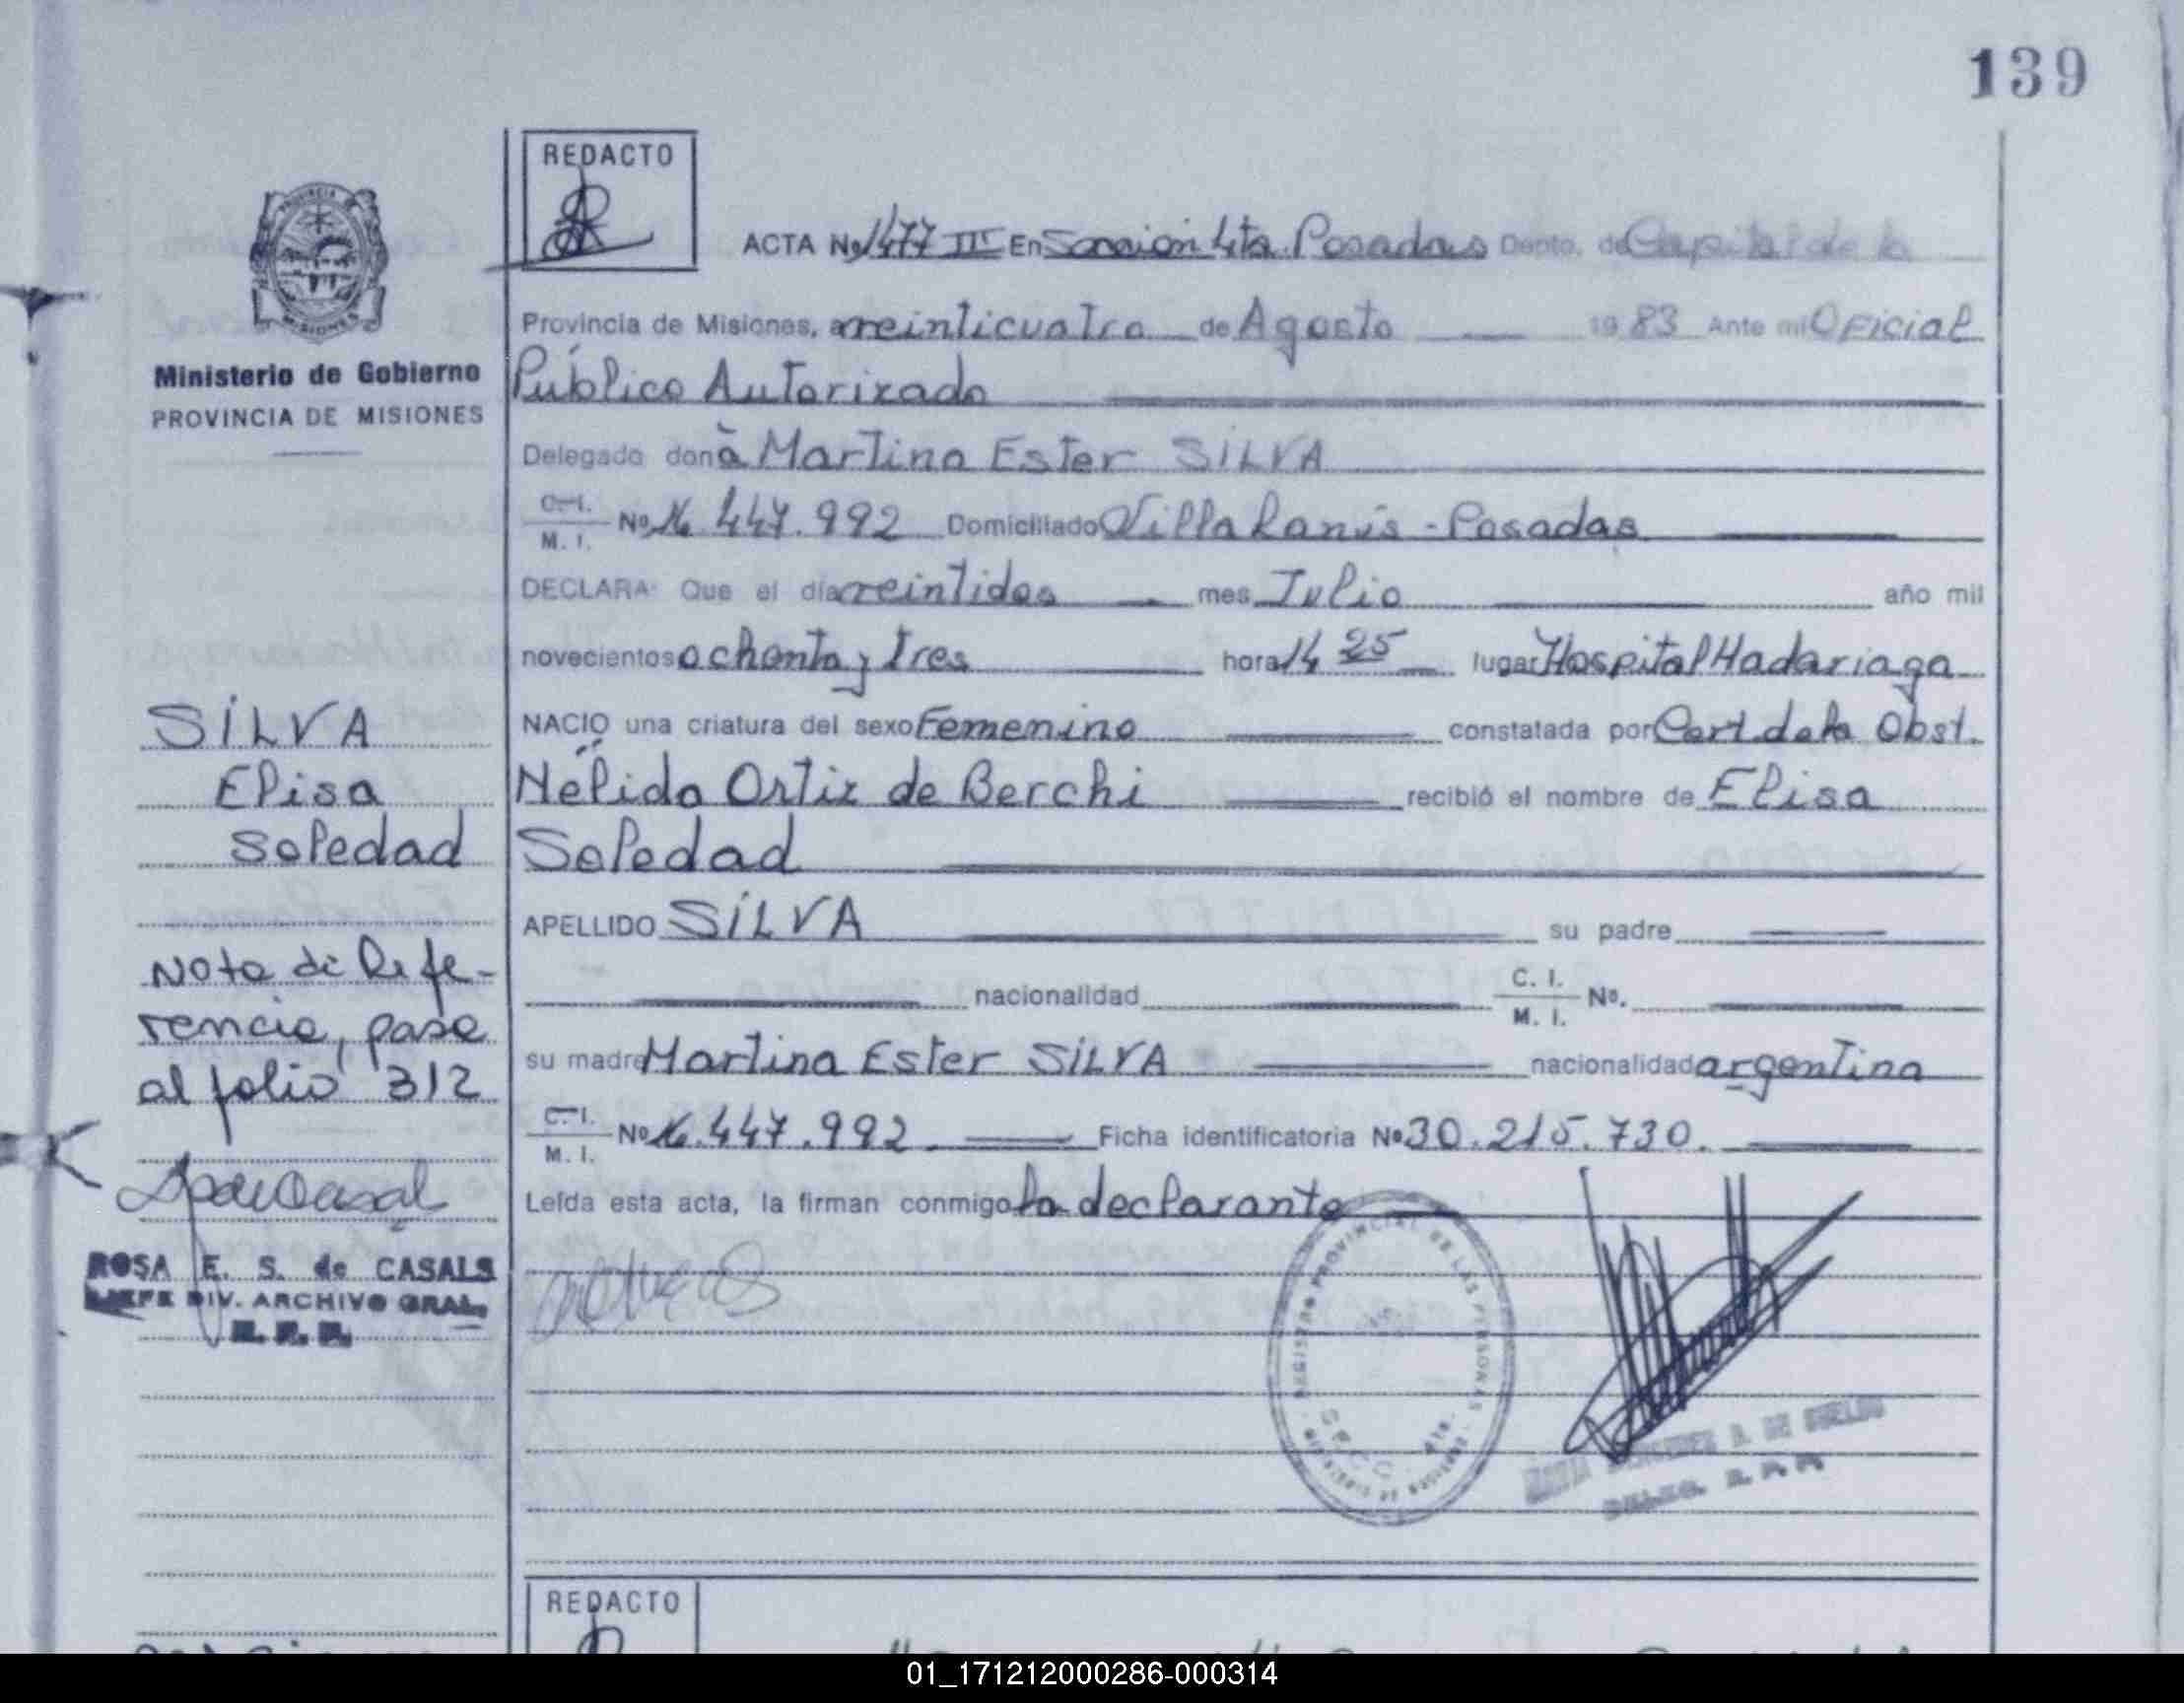 139
REDACTO
ACTA No 1477 III En Sección 4ta. Posadas Depto. de Capital de la
Provincia de Misiones, a veinticuatro de Agosto 1983 Ante mi Oficial
Público Autorizado
Ministerio de Gobierno
PROVINCIA DE MISIONES
Delegado doña Martina Ester SILVA
C. I.
M. I.
No 16.447.992 Domiciliado Villa Lanús - Posadas
DECLARA: Que el día veintidos mes Julio año mil
novecientos ochenta y tres hora 14 25 lugar Hospital Madariaga
NACIO una criatura del sexo Femenino constatada por Cert. de la Obst.
Nélida Ortiz de Berchi recibió el nombre de Elisa
Soledad
APELLIDO SILVA su padre
nacionalidad C. I.
M. I. No.
su madre Martina Ester SILVA nacionalidad argentina
C. I.
M. I.
No 16.447.992. Ficha identificatoria No 30.215.730.
Leída esta acta, la firman conmigo la declarante
SILVA
Elisa
Soledad
Nota de Refe-
rencia, pase
al folio 312
ROSA E. S. de CASALS
JEFE DIV. ARCHIVO GRAL.
R. P. P.
REGISTRO PROVINCIAL DE LAS PERSONAS
SECC. 4ta.
REDACTO
01_171212000286-000314